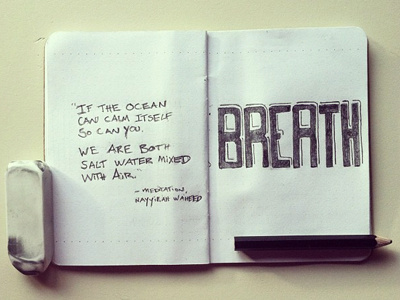 "IF THE OCEAN
CAN CALM ITSELF
SO CAN YOU.
WE ARE BOTH
SALT WATER MIXED
WITH AIR."
- MEDITATION,
NAYYIRAH WAHEED
BREATH